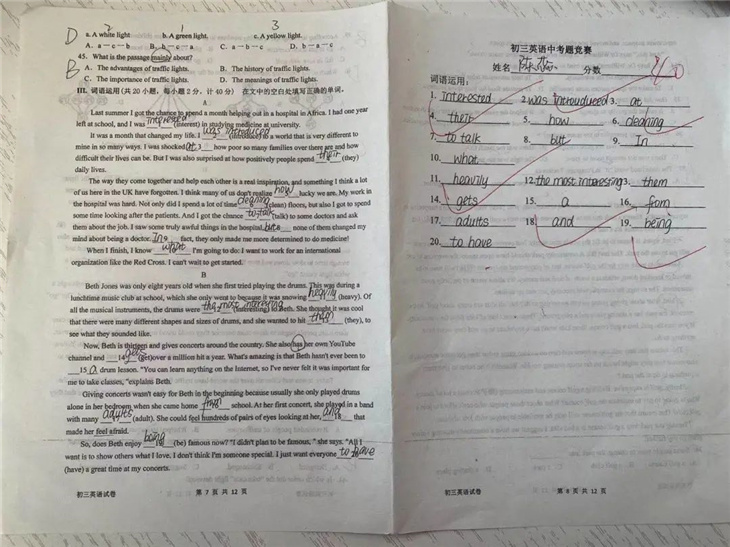 D a. A white light b. A green light. c. A yellow light.
2 1 3
A. a—c—b B. b—c—a C. a—b—c D. b—a—c
B 45. What is the passage mainly about?
A. The advantages of traffic lights. B. The history of traffic lights.
C. The importance of traffic lights. D. The meanings of traffic lights.
III. 词语运用(共 20 小题, 每小题 2 分, 计 40 分) 在文中的空白处填写正确的单词。
A
Last summer I got the chance to spend a month helping out in a hospital in Africa. I had one year
left at school, and I was interested (interest) in studying medicine at university.
It was a month that changed my life. I was introduced (introduce) to a world that is very different to
mine in so many ways. I was shocked at 3 how poor so many families over there are and how
difficult their lives can be. But I was also surprised at how positively people spend their (they)
daily lives.
The way they come together and help each other is a real inspiration, and something I think a lot
of us here in the UK have forgotten. I think many of us don't realize how lucky we are. My work in
the hospital was hard. Not only did I spend a lot of time cleaning (clean) floors, but also I got to spend
some time looking after the patients. And I got the chance to talk (talk) to some doctors and ask
them about the job. I saw some truly awful things in the hospital, but 8 none of them changed my
mind about being a doctor. In 9 fact, they only made me more determined to do medicine!
When I finish, I know what I'm going to do: I want to work for an international
organization like the Red Cross. I can't wait to get started.
B
Beth Jones was only eight years old when she first tried playing the drums. This was during a
lunchtime music club at school, which she only went to because it was snowing heavily (heavy). Of
all the musical instruments, the drums were the most interesting (interesting) to Beth. She thought it was cool
that there were many different shapes and sizes of drums, and she wanted to hit them (they), to
see what they sounded like.
Now, Beth is thirteen and gives concerts around the country. She also has her own YouTube
channel and 14 gets (get)over a million hit a year. What's amazing is that Beth hasn't ever been to
15 a drum lesson. "You can learn anything on the Internet, so I've never felt it was important for
me to take classes, "explains Beth.
Giving concerts wasn't easy for Beth in the beginning because usually she only played drums
alone in her bedroom when she came home from school. At her first concert, she played in a band
with many adults (adult). She could feel hundreds of pairs of eyes looking at her, and 18 that
made her feel afraid.
So, does Beth enjoy being (be) famous now? "I didn't plan to be famous, " she says. "All I
want is to show others what I love. I don't think I'm someone special. I just want everyone to have
(have) a great time at my concerts.
初三英语试卷 第 7 页 共 12 页
初三英语中考题竞赛
姓名 分数
词语运用:
1. interested 2. was introduced 3. at
4. their 5. how 6. cleaning
7. to talk 8. but 9. In
10. what
11. heavily 12. the most interesting 13. them
14. gets 15. a 16. from
17. adults 18. and 19. being
20. to have
初三英语试卷 第 8 页 共 12 页